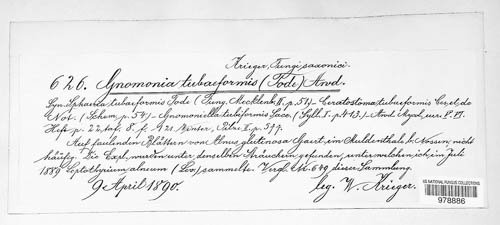 Krieger, Fungi saxonici.
626. Gnomonia tubaeformis (Tode) Awd.
Syn. Sphaeria tubaeformis Tode (Fung. Mecklenb. II. p. 51) – Ceratostoma tubaeformis Ces. et de
Not. (Schem. p. 54) – Gnomoniella tubiformis Sacc. (Syll. I. p. 413.) – And. Myck. eur. P. VI.
Heft p. 22. taf. 8. f. 121. Winter, Pilze II. p. 577.
Auf faulenden Blättern von Alnus glutinosa Gaert. im Muldenthale b. Nossen, nicht
häufig. Die Expl. wurden unter denselben Sträuchern gefunden, unter welchen ich im Juli
1889 Leptothyrium alneum (Lev.) sammelte. Vergl. No. 649 dieser Sammlung.
9 April 1890. leg. W. Krieger.
US NATIONAL FUNGUS COLLECTIONS
978886